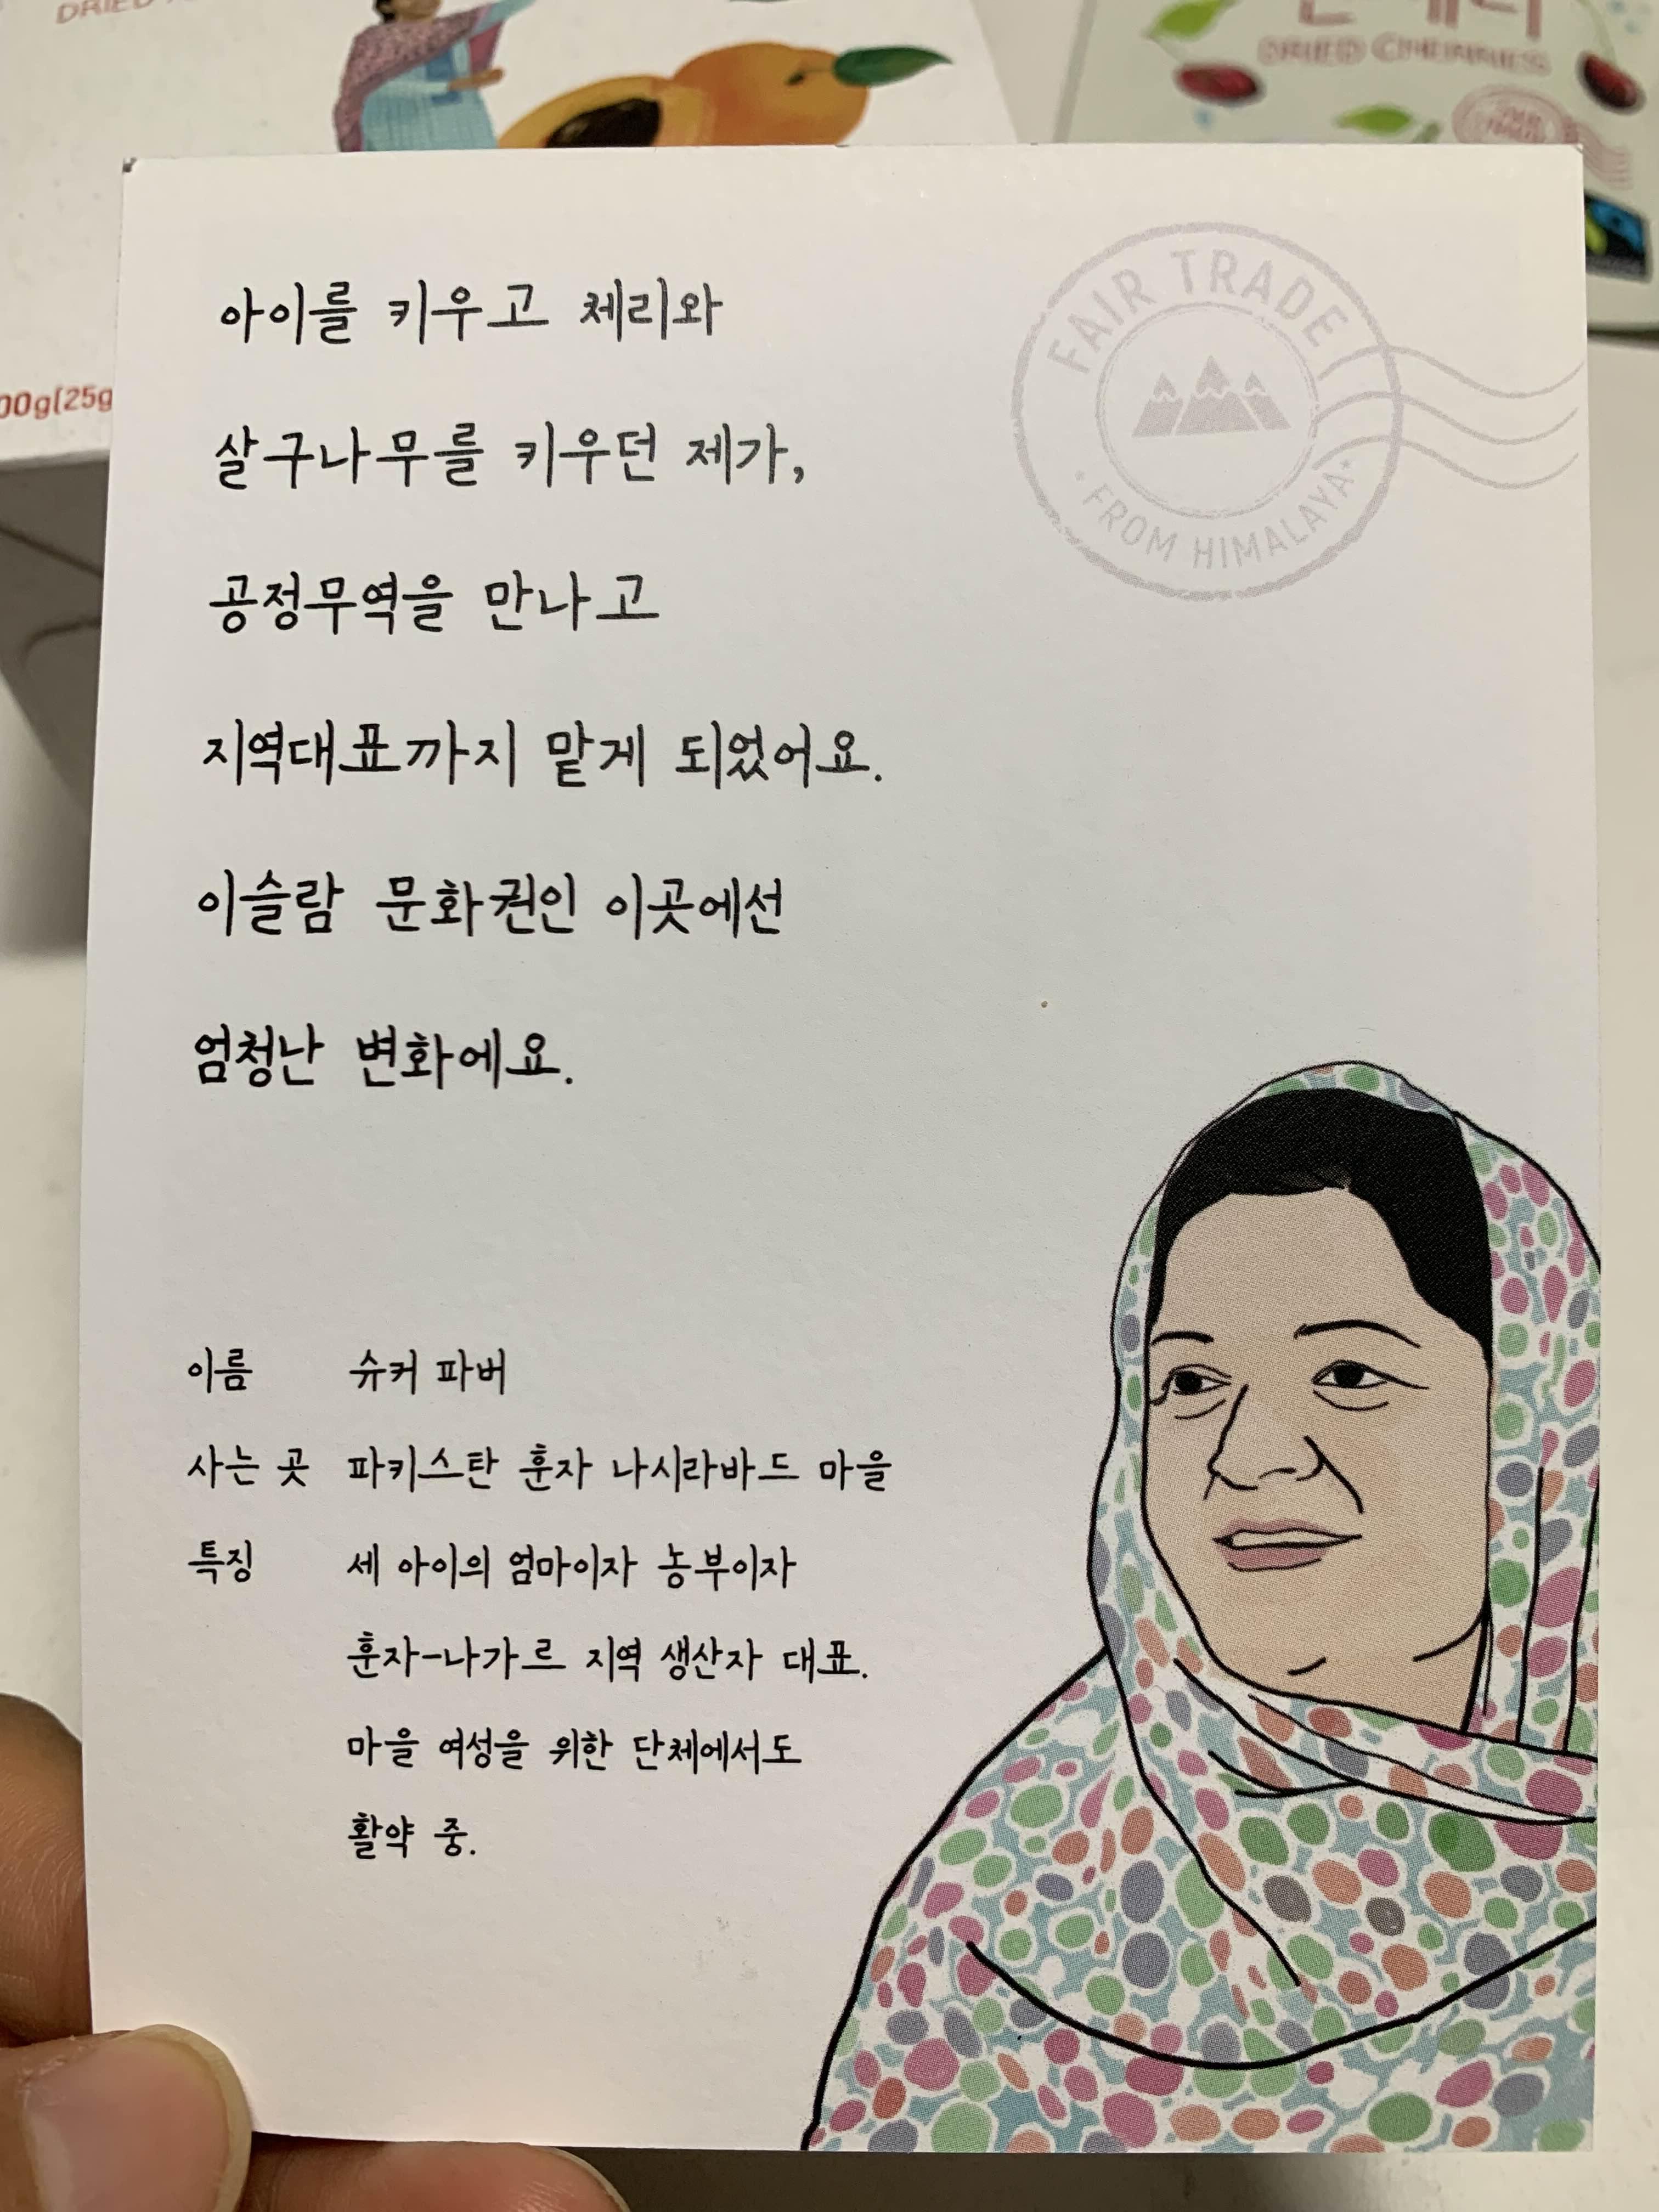 DRIED
DRIED CHERRIES
00g(25g
FAIR TRADE
FROM HIMALAYA
아이를 키우고 체리와
살구나무를 키우던 제가,
공정무역을 만나고
지역대표까지 맡게 되었어요.
이슬람 문화권인 이곳에선
엄청난 변화에요.
이름 슈커 파버
사는 곳 파키스탄 훈자 나시라바드 마을
특징 세 아이의 엄마이자 농부이자
훈자-나가르 지역 생산자 대표.
마을 여성을 위한 단체에서도
활약 중.